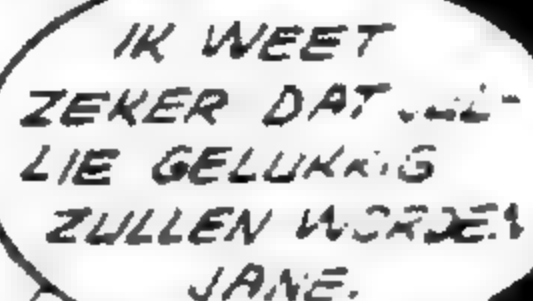 IK WEET
ZEKER DAT JUL-
LIE GELUKKIG
ZULLEN WORDEN
JANE.